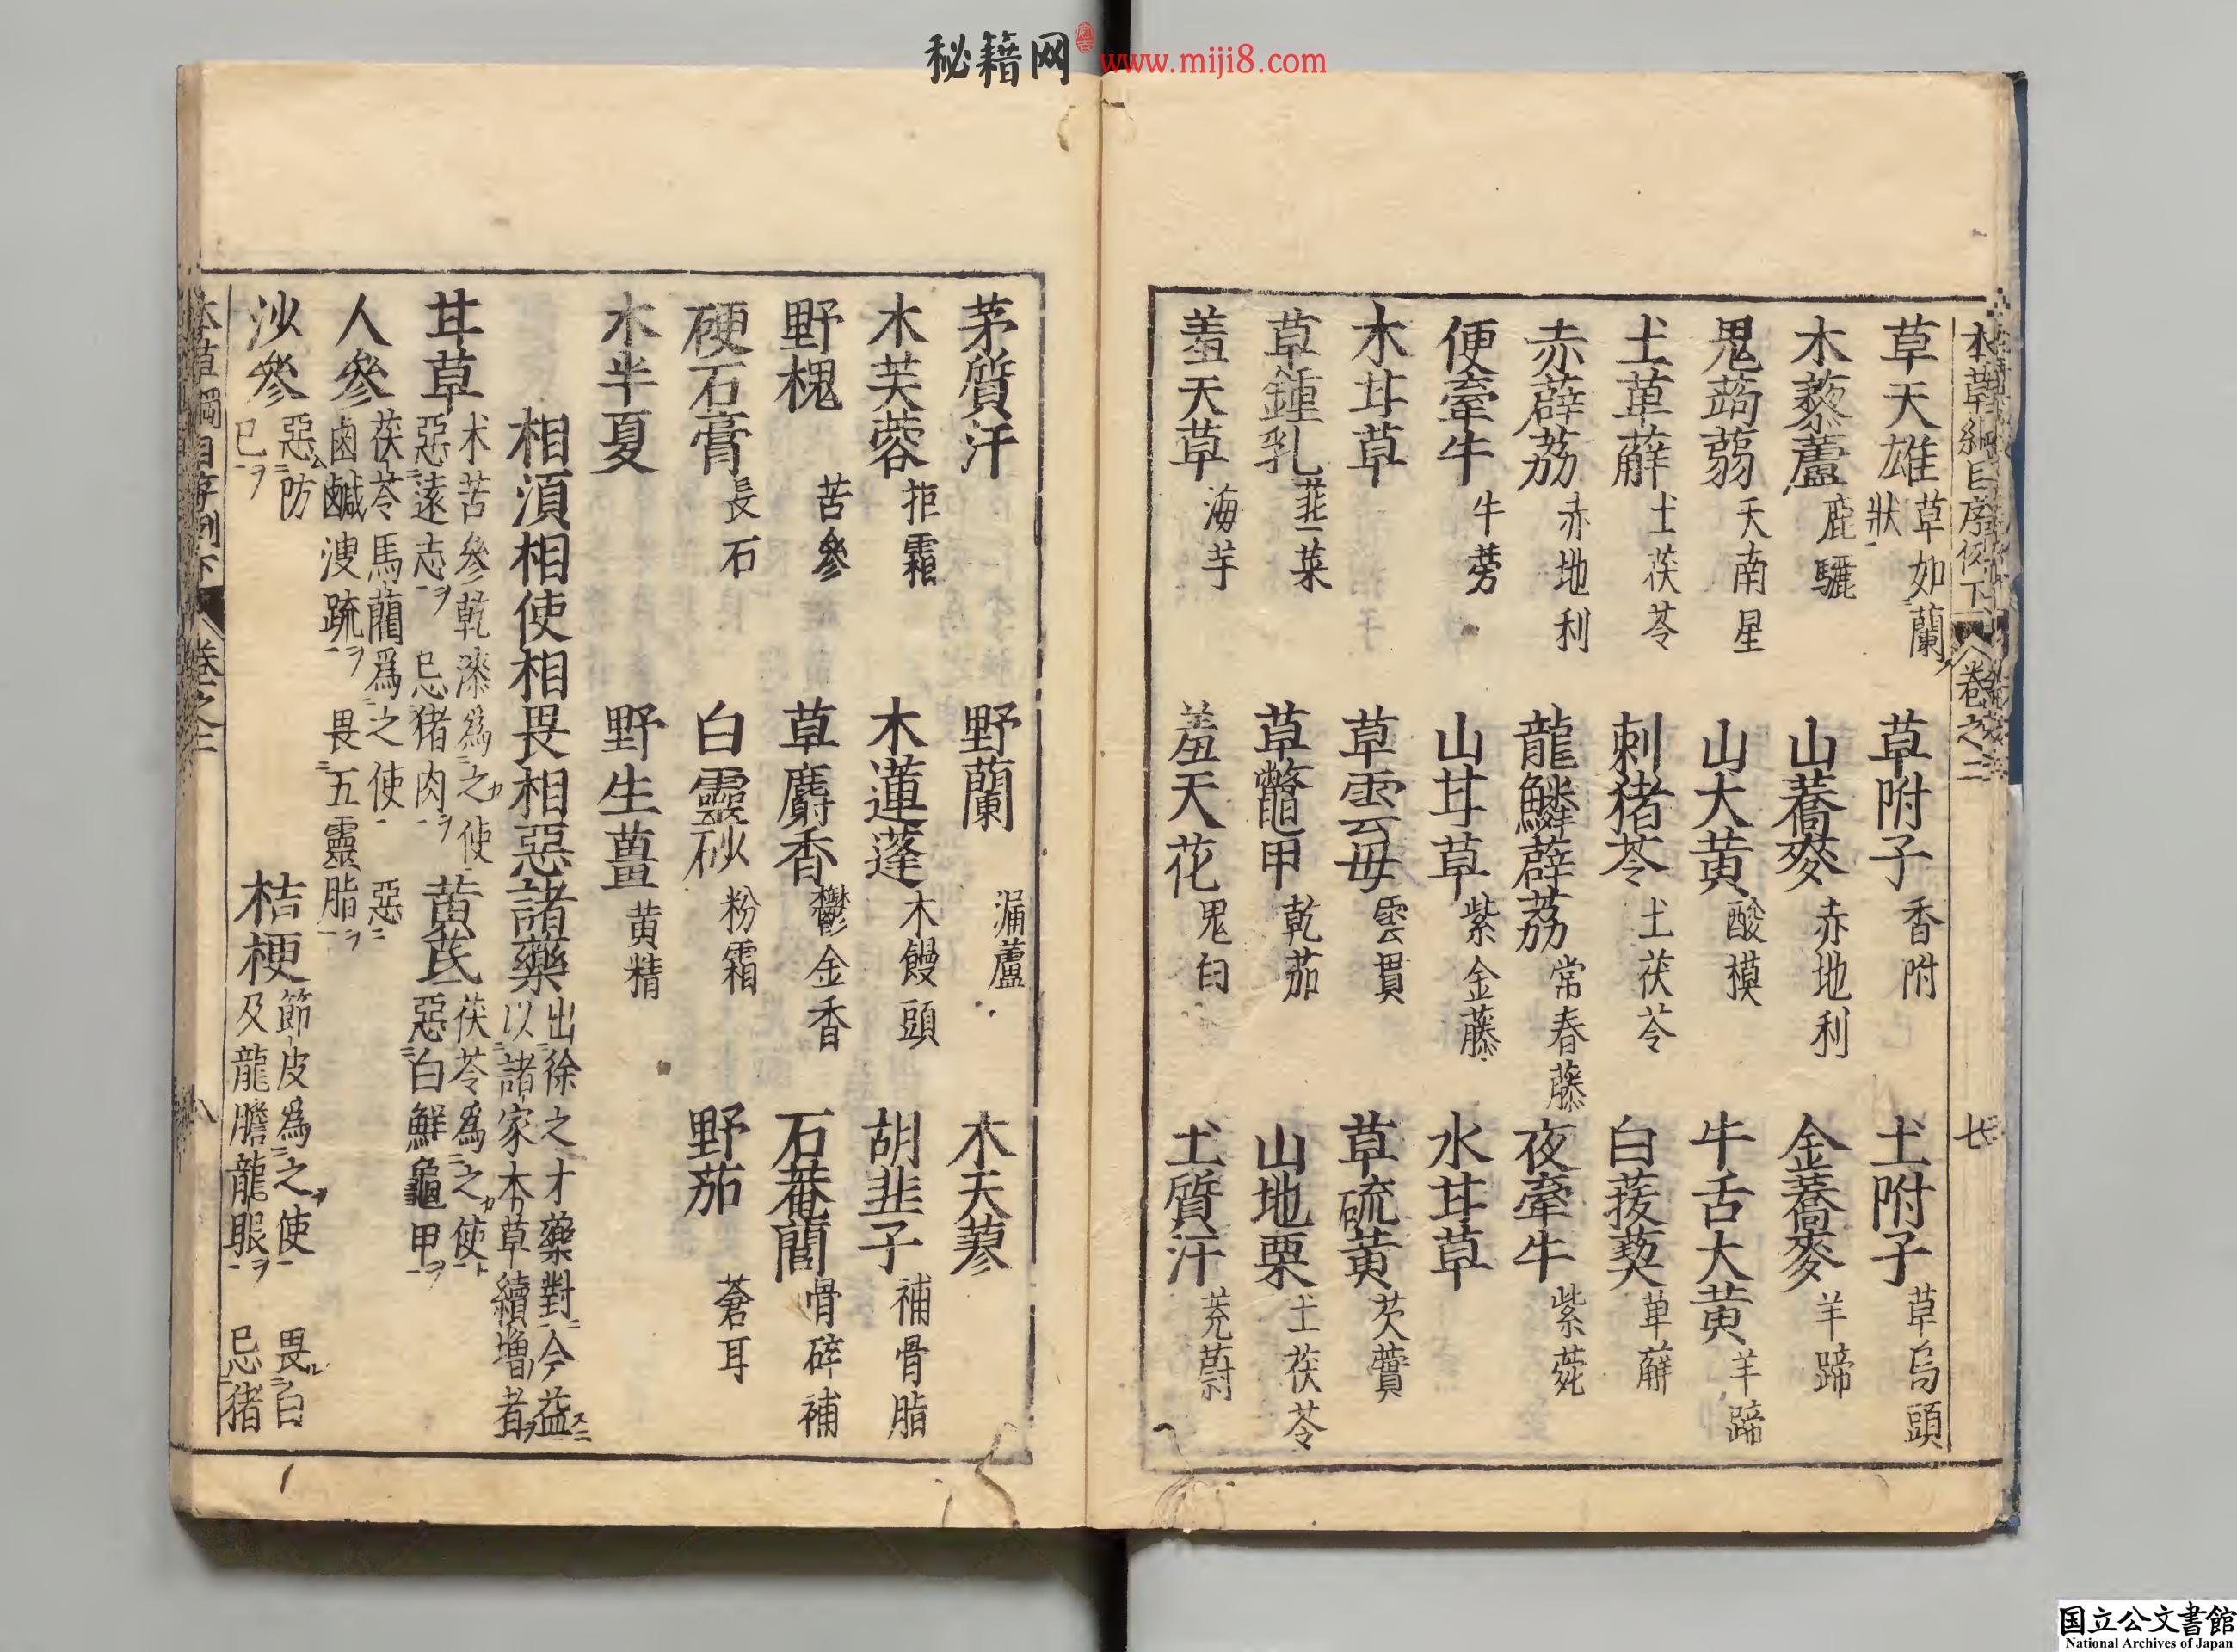 秘籍网 www.miji8.com
本草綱目序例下 卷之二 七
草天雄 草如蘭狀 草附子 香附 土附子 草烏頭
木藜蘆 鹿驪 山蕎麥 赤地利 金蕎麥 羊蹄
鬼蒟蒻 天南星 山大黃 酸模 牛舌大黃 羊蹄
土萆薢 土茯苓 刺猪苓 土茯苓 白菝葜 萆薢
赤薜荔 赤地利 龍鱗薜荔 常春藤 夜牽牛 紫菀
便牽牛 牛蒡 山甘草 紫金藤 水甘草
木甘草 草雲母 雲實 草硫黃 芡實
草鍾乳 韮菜 草鼈甲 乾茄 山地栗 土茯苓
羞天草 海芋 羞天花 鬼臼 土質汗 茺蔚
茅質汗 野蘭 漏蘆 木天蓼
木芙蓉 拒霜 木蓮蓬 木饅頭 胡韭子 補骨脂
野槐 苦參 草麝香 鬱金香 石菴䕡 骨碎補
硬石膏 長石 白靈砂 粉霜 野茄 蒼耳
水半夏 野生薑 黄精
相須相使相畏相惡諸藥 出徐之才藥對今益以諸家本草續增者
甘草 术苦參乾漆爲之使 惡遠志 忌猪肉 黄芪 茯苓爲之使 惡白鮮龜甲
人參 茯苓馬藺爲之使 惡鹵鹹溲疏 畏五靈脂
沙參 惡防己 桔梗 節皮爲之使 畏白及龍膽龍眼 忌猪
本草綱目序例下 卷之二 八
国立公文書館
National Archives of Japan